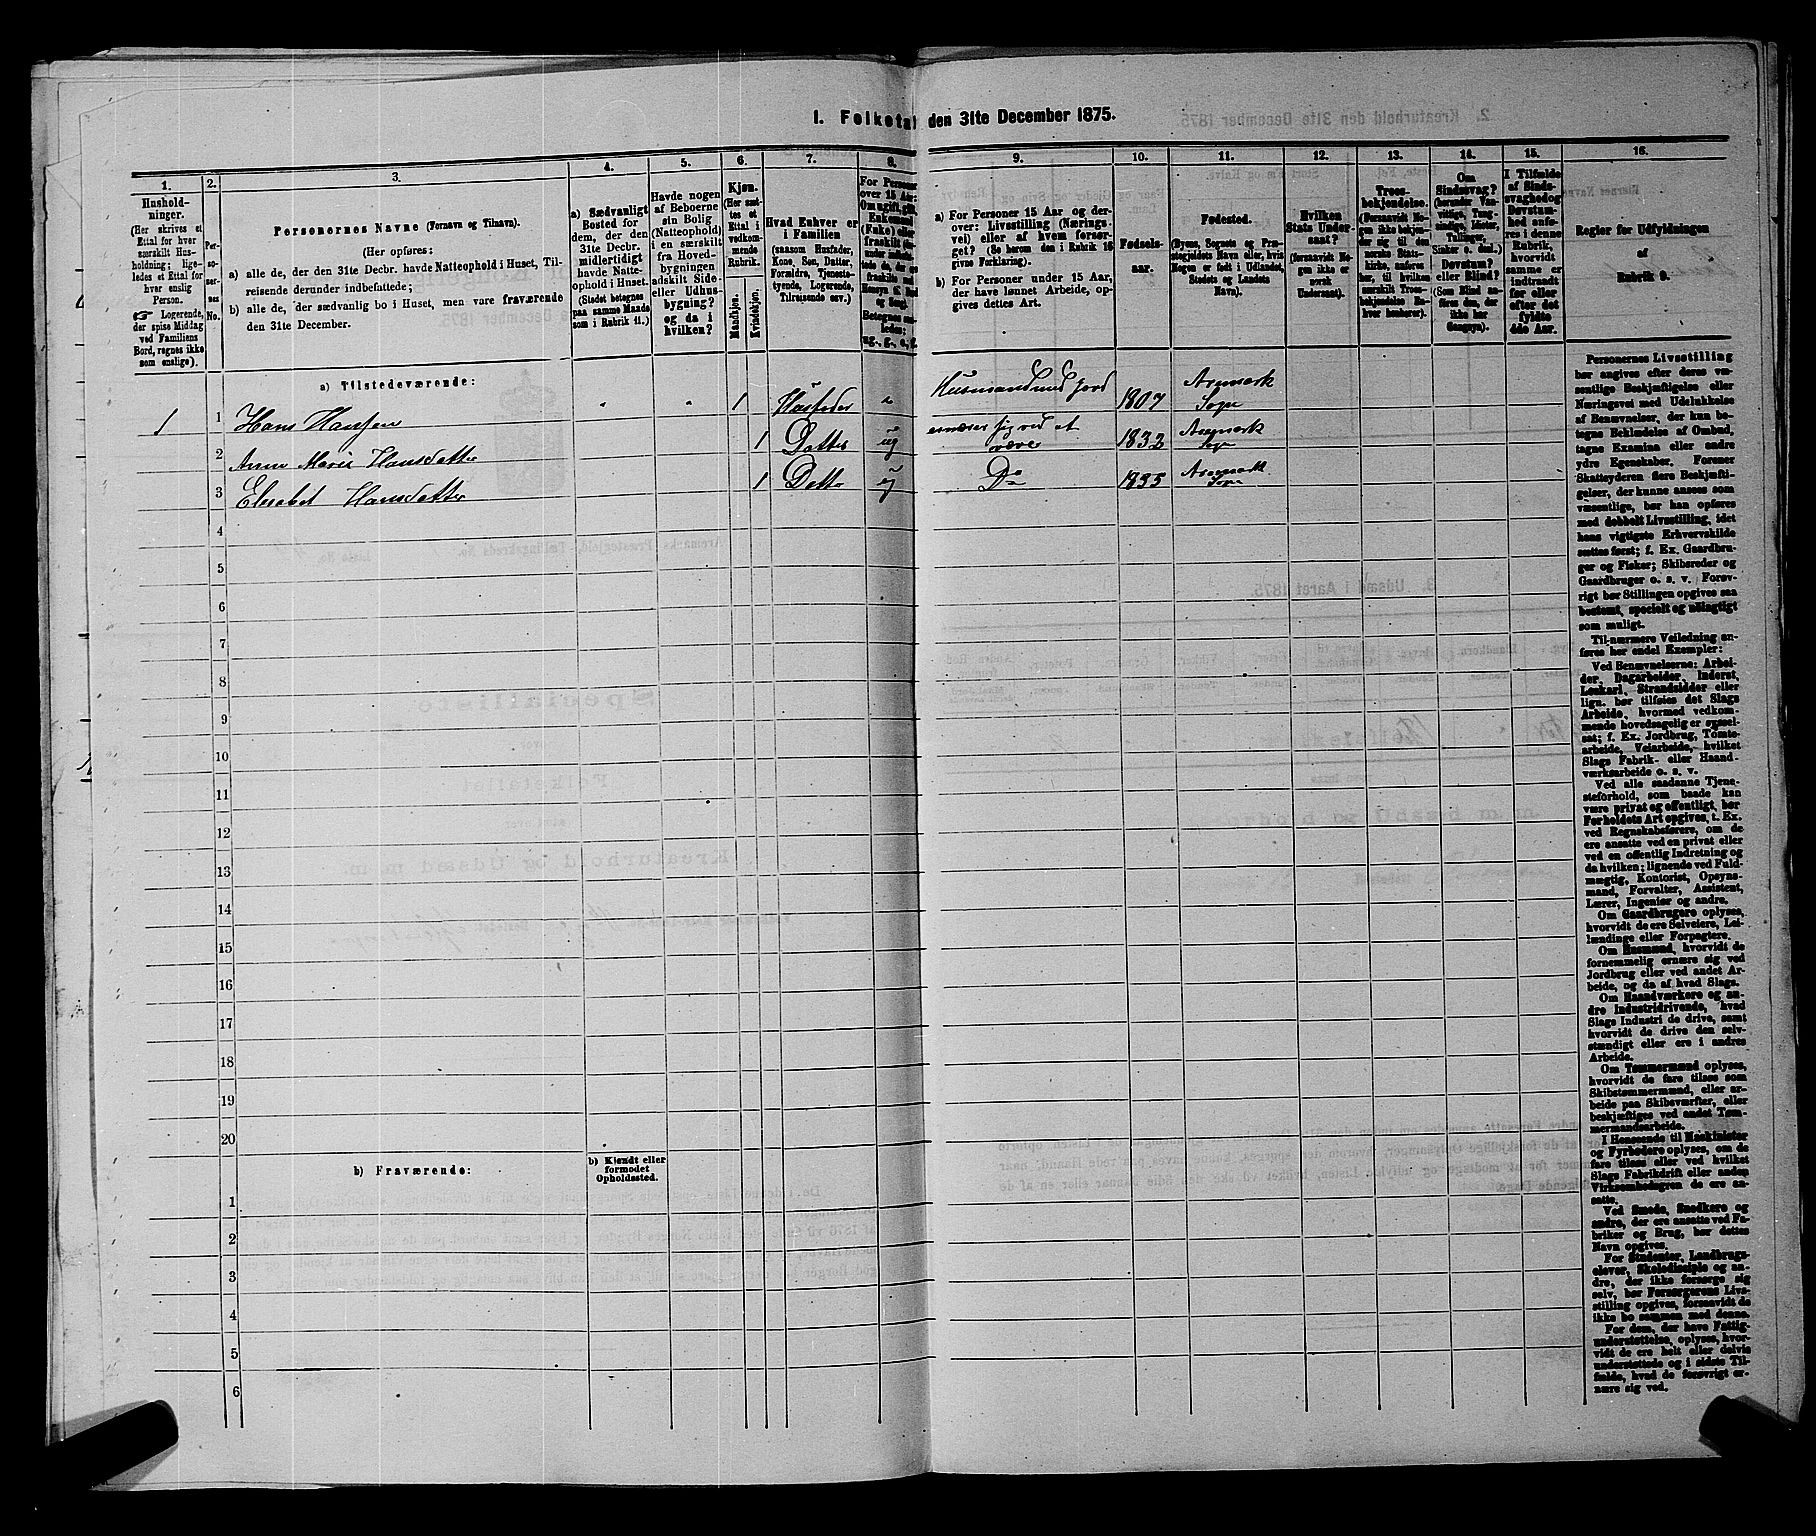 1. Folketal den 31te December 1875.
1.
2.
3.
4.
5.
6.
7.
8.
9.
10.
11.
12.
13.
14.
15.
16.
Husholdninger.
(Her skrives et
Ettal for hver
særskilt Husholdning; ligeledes
et Ettal for
hver enslig
Person.
☞ Logerende,
der spise Middag
ved Familiens
Bord, regnes ikke
som enslige).
Personernes No.
Personernes Navne (Fornavn og Tilnavn).
(Her opføres:
a) alle de, der den 31te Decbr. havde Natteophold i Huset, Tilreisende derunder indbefattede;
b) alle de, der sædvanlig bo i Huset, men vare fraværende
den 31te December.
a) Sædvanligt
Bosted for
dem, der den
31te Decbr.
midlertidigt
havde Natteophold i Huset.
(Stedet betegnes
paa samme Maade
som i Rubrik 11.)
Havde nogen
af Beboerne
sin Bolig
(Natteophold)
i en særskilt
fra Hovedbygningen
adskilt Side-
eller Udhusbygning?
og da i
hvilken?
Kjøn.
(Her sættes et
Ettal i
vedkommende
Rubrik.
Mandkjøn.
Kvindekjøn.
Hvad Enhver er
i Familien
(saasom Husfader,
Kone, Søn, Datter,
Forældre, Tjenestetyende, Logerende,
Tilreisende osv.)
For Personer
over 15 Aar:
a) For Personer 15 Aar og derover: Livsstilling (Næringsvei) eller af hvem forsørget? (Se herom den i Rubrik 16
givne Forklaring).
b) For Personer under 15 Aar,
der have lønnet Arbeide, opgives dettes Art.
Fødselsaar.
Fødested.
(Byens, Sognets og Præstegjeldets Navn eller, hvis
Nogen er født i Udlandet,
Stedets og Landets
Navn).
Hvilken
Stats Undersaat?
(forsaavidt Nogen ikke er
norsk
Undersaat).
Troesbekjendelse.
Om
Sindssvag?
Døvstum?
eller Blind?
I Tilfælde
af Sindssvaghed og
Døvstumhed
Regler for Udfyldningen
af
Rubrik 9.
a) Tilstedeværende:
1 1 Hans Hansen " " 1 Husfader Husmand med jord 1807 Aremark Sogn
2 Anne Marie Hansdatter 1 Datter ug ernærer sig ved at væve 1832 Aremark Sogn
3 Elisabet Hansdatter 1 Datter ug Do 1835 Aremark Sogn
4
5
6
7
8
9
10
11
12
13
14
15
16
17
18
19
20
b) Fraværende:
b) Kjendt eller
formodet
Opholdssted.
1
2
3
4
5
6
Personernes Livsstilling
bør angives efter deres væsentlige Beskjæftigelse eller
Næringsvei med Udelukkelse
af Benævnelser, der kun betegne Beklædelse af Ombud,
tagne Examina eller andre
ydre Egenskaber. Forener
Skatteyderen flere Beskjæftigelser, der kunne ansees som
væsentlige, bør han opføres
med dobbelt Livsstilling, idet
hans vigtigste Erhvervskilde
sættes først; f. Ex. Gaardbruger og Fisker; Skibsreder og
Gaardbruger o. s. v. Forøvrigt bør Stillingen opgives saa
bestemt, specielt og nøiagtigt
som muligt.
Til nærmere Veiledning anføres her endel Exempler:
Ved Benævnelserne: Arbeider, Dagarbeider, Inderst,
Løskarl, Strandsidder eller
lign. bør tilføies det Slags
Arbeide, hvormed vedkommende hovedsagelig er sysselsat; f. Ex. Jordbrug, Tomtearbeide, Veiarbeide, hvilket
Slags Fabrik- eller Haandværksarbeide o. s. v.
Ved alle saadanne Tjenesteforhold, som baade kan
være privat og offentligt, bør
Forholdets Art opgives, t. Ex.
ved Regnskabsførere, om de
ere ansatte ved en privat eller
ved en offentlig Indretning og
da hvilken; lignende ved Fuldmægtig, Kontorist, Opsynsmand, Forvalter, Assistent,
Lærer, Ingeniør og andre.
Om Gaardbrugere oplyses,
hvorvidt de ere Selveiere, Leilændinge eller Forpagtere.
Om Husmænd, hvorvidt de
fornemmelig ernære sig ved
Jordbrug eller ved andet Arbeide, og da af hvad Slags.
Om Haandværkere og andre Industridrivende, hvad
Slags Industri de drive, samt
hvorvidt de drive den selvstændigt eller ere i andres
Arbeide.
Om Tømmermænd oplyses,
hvorvidt de fare tilsøs som
Skibstømmermænd, eller arbeide paa Skibsværfter, eller
beskjæftiges ved andet Tømmermandsarbeide.
I Henseende til Maskinister
og Fyrbødere oplyses, om de
fare tilsøs eller ved hvilket
Slags Fabrikdrift eller anden
Virksomhedsgren de ere ansatte.
Ved Smede, Snedkere og
andre, der ere ansatte ved Fabriker og Brug, bør dettes
Navn opgives.
For Studenter, Landbrugselever, Skoledisciple og andre, der ikke forsørge sig
selv, bør Forsørgerens Livsstilling opgives, forsaavidt de
ikke bo sammen med denne.
For dem, der have Fattigunderstøttelse, oplyses, hvorvidt de ere helt eller delvis
understøttede og i sidste Tilfælde, hvad de forøvrigt ernære sig ved.